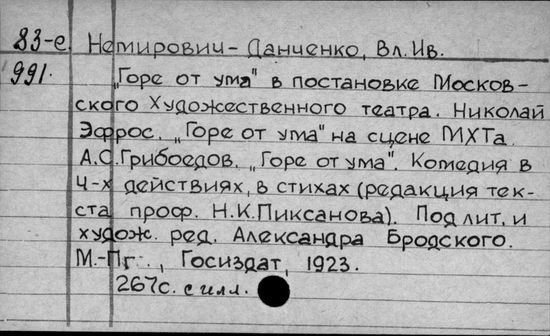 83-е. Немирович-Данченко, Вл. Ив.
991. „Горе от ума" в постановке Москов-
ского Художественного театра. Николай
Эфрос. „Горе от ума" на сцене МХТа.
А.С.Грибоедов. „Горе от ума". Комедия в
4-х действиях, в стихах (редакция тек-
ста проф. Н.К.Пиксанова). Под лит. и
худож. ред. Александра Бродского.
М.-Пг., Госиздат, 1923.
267с. с илл.